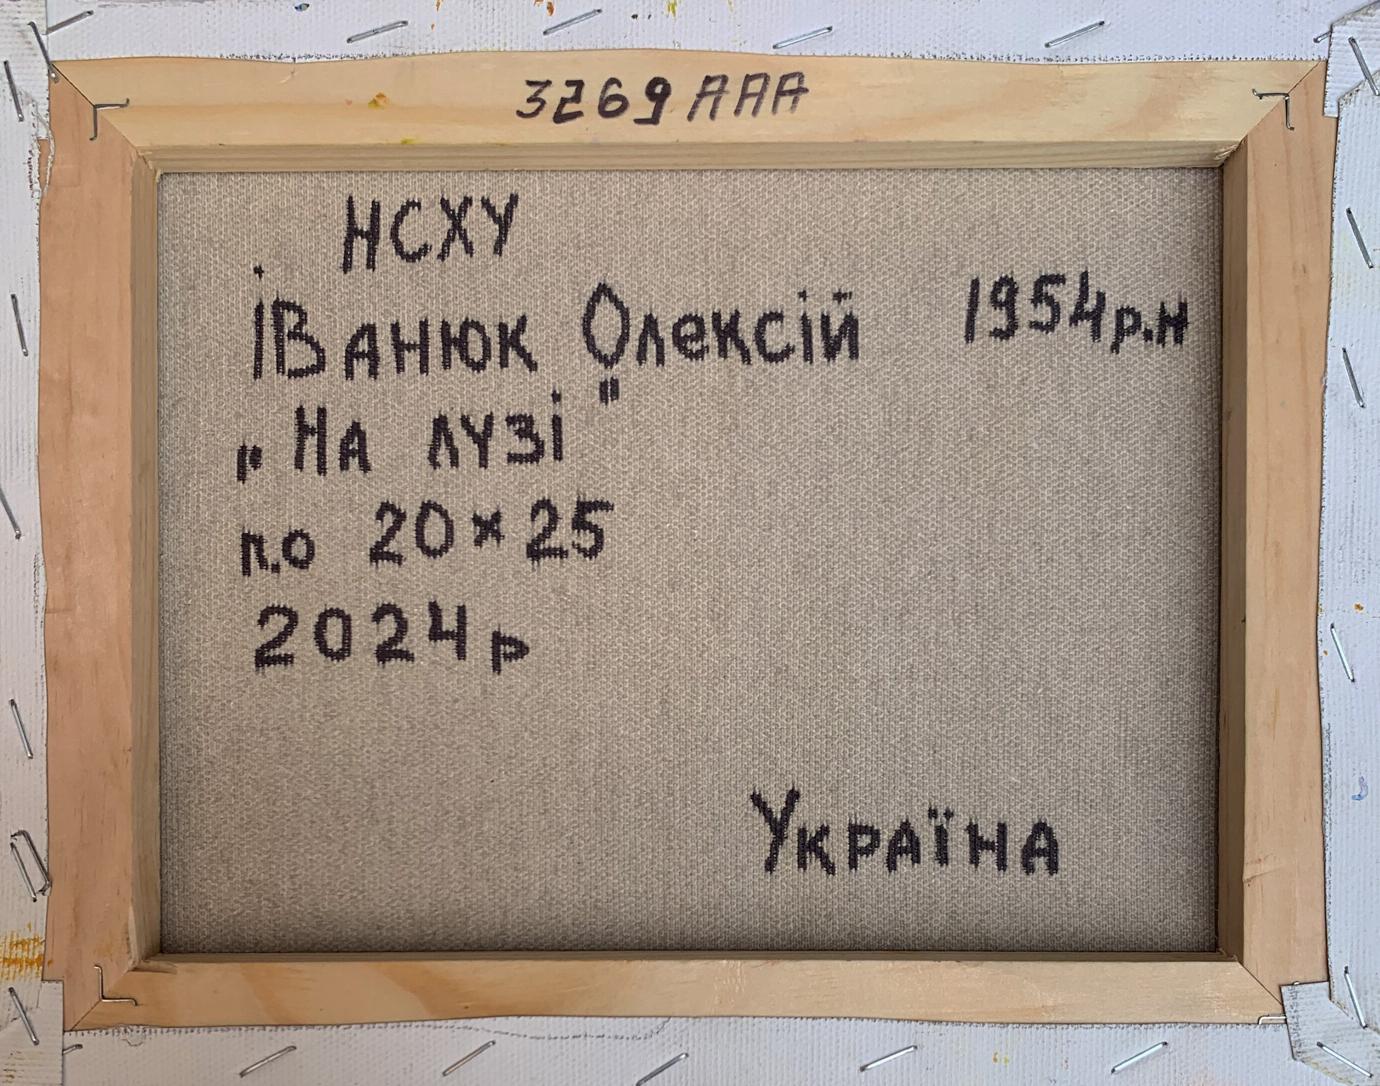 3269 AAA
НСХУ
Іванюк Олексій 1954 р.н
„На лузі"
п.о 20×25
2024 р
Україна